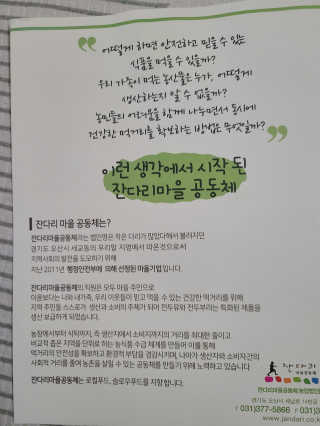 "어떻게 하면 안전하고 믿을 수 있는
식품을 먹을 수 있을까?
우리 가족이 먹는 농산물은 누가, 어떻게
생산하는지 알 수 없을까?
농민들의 어려움을 함께 나누면서 동시에
건강한 먹거리를 확보하는 방법은 무엇일까?"
이런 생각에서 시작 된
잔다리마을 공동체
잔다리 마을 공동체는?
잔다리마을공동체라는 법인명은 작은 다리가 많았다해서 불리지던
경기도 오산시 세교동의 우리말 지명에서 따온것으로써
지역사회의 발전을 도모하기 위해
지난 2011년 행정안전부에 의해 선정된 마을기업입니다.
잔다리마을공동체의 직원은 모두 마을 주민으로
이윤보다는 나와 내가족, 우리 이웃들이 믿고 먹을 수 있는 건강한 먹거리를 위해
지역 주민들 스스로가 생산과 소비의 주체가 되어 전두유와 전두부라는 특화된 제품을
생산 보급하게 되었습니다.
농장에서부터 식탁까지, 즉 생산자에서 소비자까지의 거리를 최대한 줄이고
비교적 좁은 지역을 단위로 하는 농식품 수급 체계를 만들어 이를 통해
먹거리의 안전성을 확보하고 환경적 부담을 경감시키며, 나아가 생산자와 소비자간의
사회적 거리를 줄여 농촌을 살릴 수 있는 공동체를 만들기 위해 노력하고 있습니다
잔다리마을공동체는 로컬푸드, 슬로우푸드를 지향합니다.
잔다리
마을공동체
잔다리마을공동체 농업법인
경기도 오산시 세남로
T 031)377-5866 F 031)
www.jandari.co.k